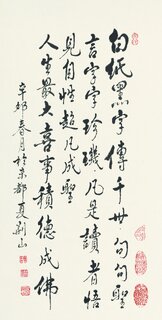 白纸黑字傳千世句句聖
言字字珍璣凡是讀者悟
見自性超凡成聖
人生最大喜事積德成佛
辛卯春月於京都夏荆山